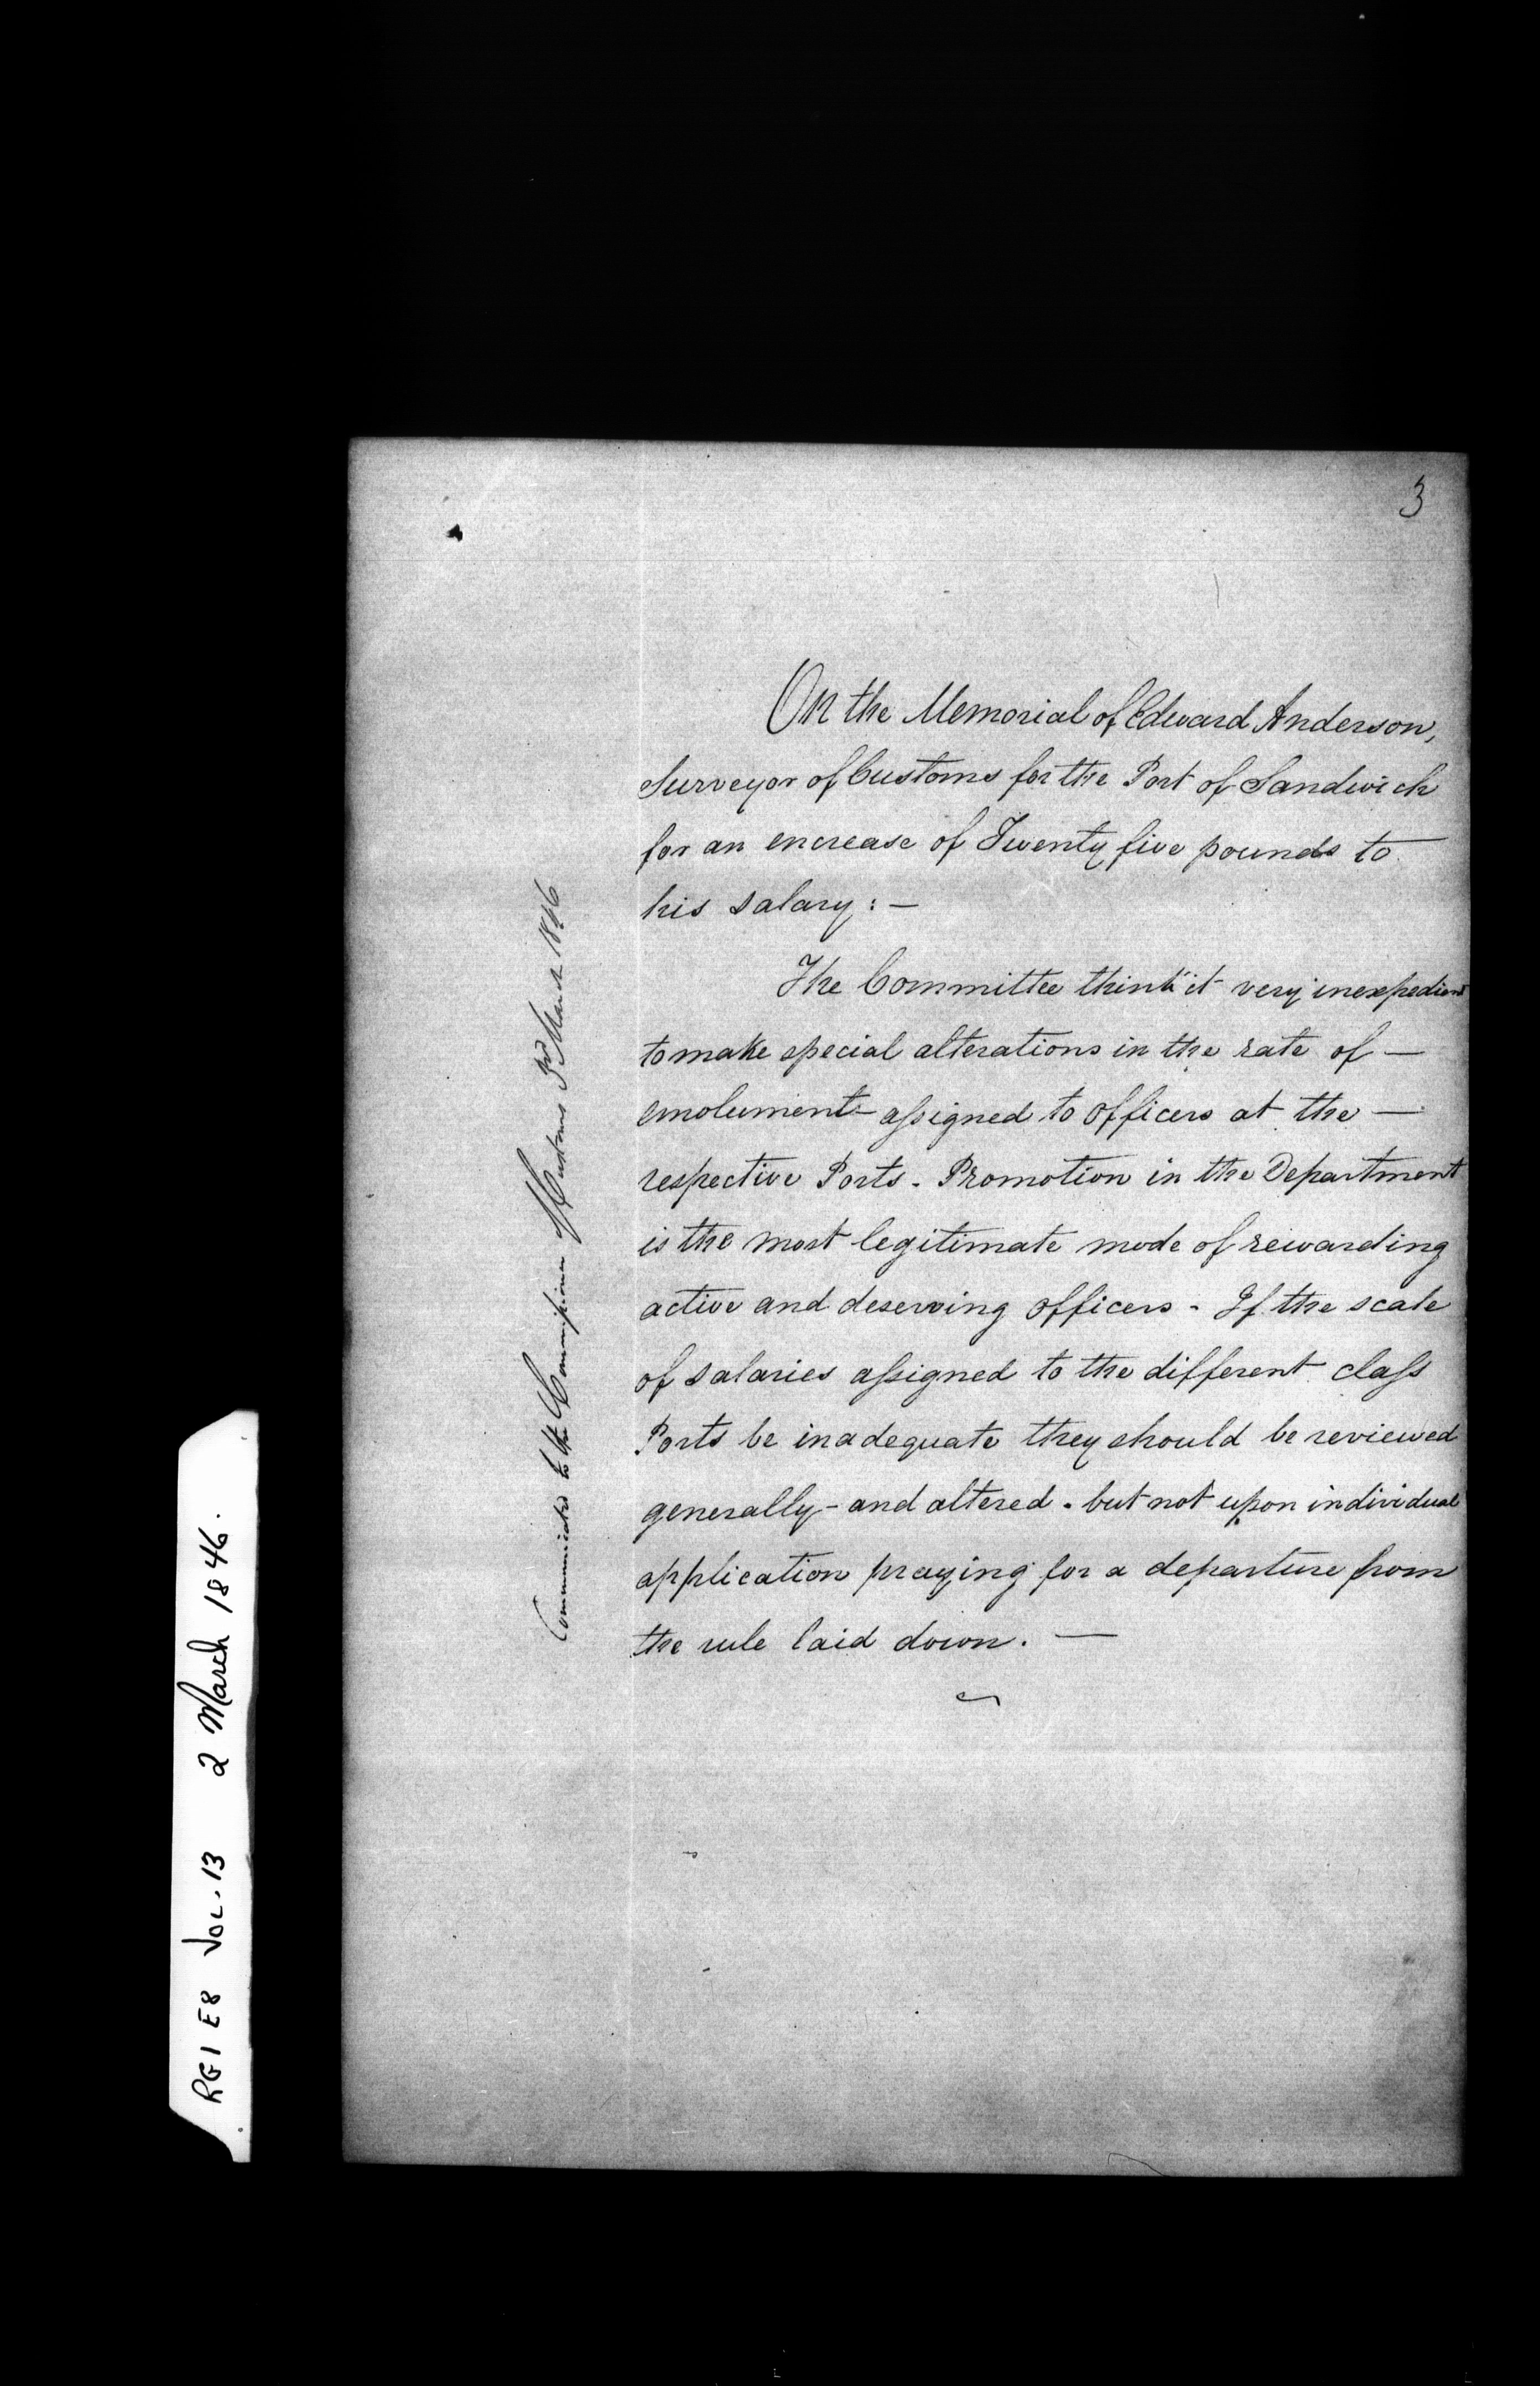 3
On the Memorial of Edward Anderson,
Surveyor of Customs for the Port of Sandwich
for an encrease of Twenty five pounds to
his salary: —
The Committee think it very inexpedient
to make special alterations in the rate of —
emolument assigned to officers at the —
respective Ports - Promotion in the Department
is the most legitimate mode of rewarding
active and deserving officers - If the scale
of salaries assigned to the different class
Ports be inadequate they should be reviewed
generally - and altered - but not upon individual
application praying for a departure from
the rule laid down. —
Communicated to the Commissioner of Customs 3rd March 1846
RG1 E8 VOL. 13 2 March 1846.